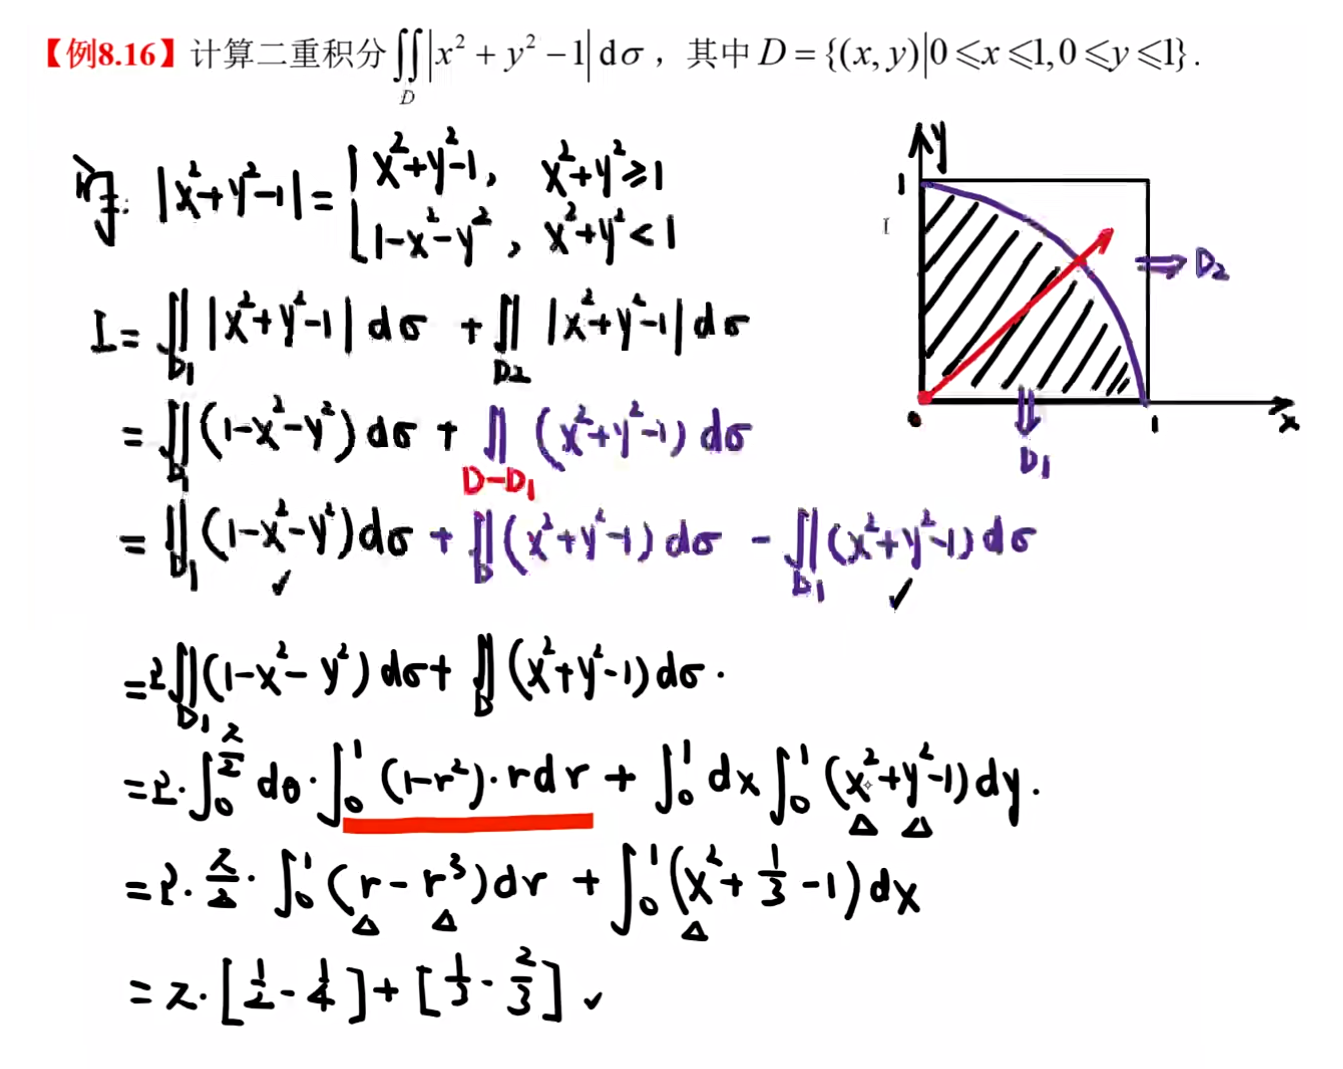 【例8.16】计算二重积分∬_D |x²+y²−1|dσ，其中D={(x,y)|0⩽x⩽1,0⩽y⩽1}.
解: |x²+y²−1|= { x²+y²−1, x²+y²≥1
1−x²−y², x²+y²<1
I=∬_D1 |x²+y²−1|dσ + ∬_D2 |x²+y²−1|dσ
=∬_D1 (1−x²−y²)dσ + ∬_D−D1 (x²+y²−1)dσ
=∬_D1 (1−x²−y²)dσ + ∬_D (x²+y²−1)dσ − ∬_D1 (x²+y²−1)dσ
✓ ✓
=2∬_D1 (1−x²−y²)dσ + ∬_D (x²+y²−1)dσ.
=2·∫_0^{π/2} dθ·∫_0^1 (1−r²)·rdr + ∫_0^1 dx∫_0^1 (x²+y²−1)dy.
=2·π/2·∫_0^1 (r−r³)dr + ∫_0^1 (x²+1/3−1)dx
=π·[1/2−1/4]+[1/3−2/3] ✓
y
1
⇒D2
0
1
x
⇓
D1